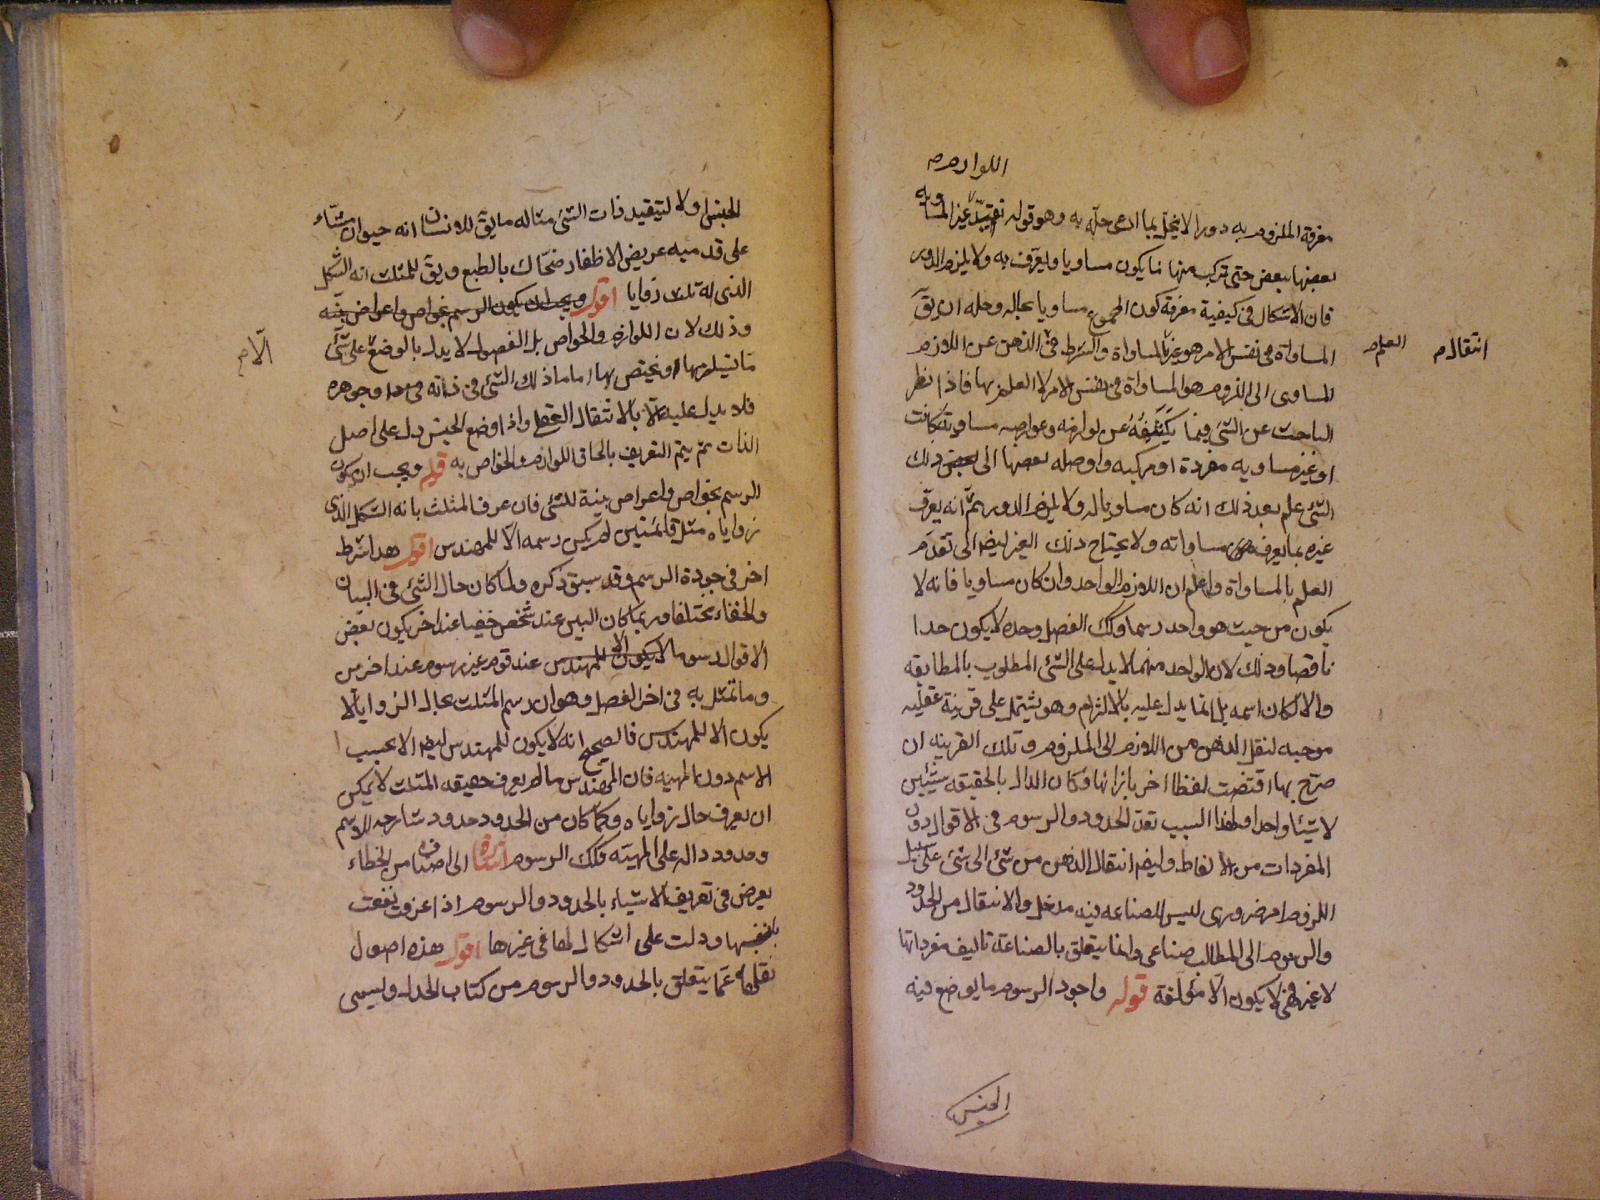 اللوازم
معرفة الملزوم به دورا لا ينحل بما ادعى حله به وهو قوله تقييد غير المساويه
بعضها ببعض حتى تركب منها ما يكون مساويا وليعرف به ولا يلزم الدور
فان الاشكال فى كيفية معرفة كون المجموع مساويا بحاله وحله ان يق
المساواة فى نفس الامر هو غير المساواة والشرط فى الذهن عن اللازم
انتقال م
العلم م
المساوى الى الملزوم هو المساواة فى نفس الامر لا العلم بها فاذا نظر
الباحث عن الشئ فيما يكتنفه من لوازمه وعوارضه مساوية كانت
او غير مساويه مفردة او مركبه واوصله بعضها الى بعض ذلك
الشئ علم بعد ذلك انه كان مساويا له ولا يلزم الدور ثم انه يعرف
غيره بما يعرف مساواته ولا يحتاج ذلك الغير ايضا الى تقدم
العلم بالمساواة واعلم ان اللازم الواحد وان كان مساويا فانه لا
يكون من حيث هو واحد رسما وكك الفصل وحده لا يكون حدا
ناقصا وذلك لان الواحد منهما لا يدل على الشئ المطلوب بالمطابقه
والا لكان اسمه بل انما يدل عليه بالالتزام وهو يشتمل على قرينة عقليه
موجبه لنقل الذهن من اللازم الى الملزوم وتلك القرينه ان
صرح بها اقتضت لفظا اخر بازائها فكان الدال بالحقيقه شيئين
لا شيئا واحدا ولهذا السبب تعد الحدود والرسوم فى الاقوال دون
المفردات من الالفاظ وايضا انتقال الذهن من شئ الى شئ على سبيل
اللزوم امر ضرورى ليس للصناعه فيه مدخل والانتقال من الحدود
والرسوم الى المطالب صناعى وانما يتعلق بالصناعة تاليف مفرداتها
لا غير فهى لا يكون الا مؤلفة قوله واجود الرسوم ما يوضع فيه
الجنس
الجنس اولا لتقييد ذات الشئ مثاله ما يق للانسان انه حيوان مشاء
على قدميه عريض الاظفار ضحاك بالطبع ويق للمثلث انه الشكل
الذى له ثلث زوايا اقول ويجب ان يكون الرسم بخواص واعراض بينه
وذلك لان اللوازم والخواص بل الفصول لا يدل بالوضع على شئ
الا م
ما تستلزمها او يختص بها اما ما ذلك الشئ فى ذاته وجوهره
فلا يدل عليه الا بالانتقال العقلى واذا وضع الجنس دل على اصل
الذات ثم يتم التعريف بالحاق اللوازم والخواص به قوله ويجب ان يكون
الرسم بخواص واعراض بينة للشئ فان عرف المثلث بانه الشكل الذى
زواياه مثل قائمتين لم يكن رسمه الا للمهندس اقول هذا شرط
اخر فى جودة الرسم وقد سبق ذكره ولما كان حال الشئ فى البيان
والخفاء مختلفا وربما كان البين عند شخص خفيا عند اخر يكون بعض
الاقوال رسوما لا يكون الا للمهندس عند قوم غير رسوم عند اخرين
وما تمثل به فى اخر الفصل وهو ان رسم المثلث بحال الزوايا لا
يكون الا للمهندس فالصحيح انه لا يكون للمهندس ايضا الا بحسب
الاسم دون المهيه فان المهندس ما لم يعرف حقيقه المثلث لا يمكن
ان يعرف حال زواياه وكما كان من الحدود حدود شارحه للاسم
وحدود داله على المهيه فكك الرسوم اشارة الى اصناف من الخطاء
يعرض فى تعريف الاشياء بالحدود والرسوم اذا عرفت نفعت
بانفسها ودلت على اشكال لها فى غيرها اقول هذه اصول
نقلها عما يتعلق بالحدود والرسوم من كتاب الجدل ويسمى